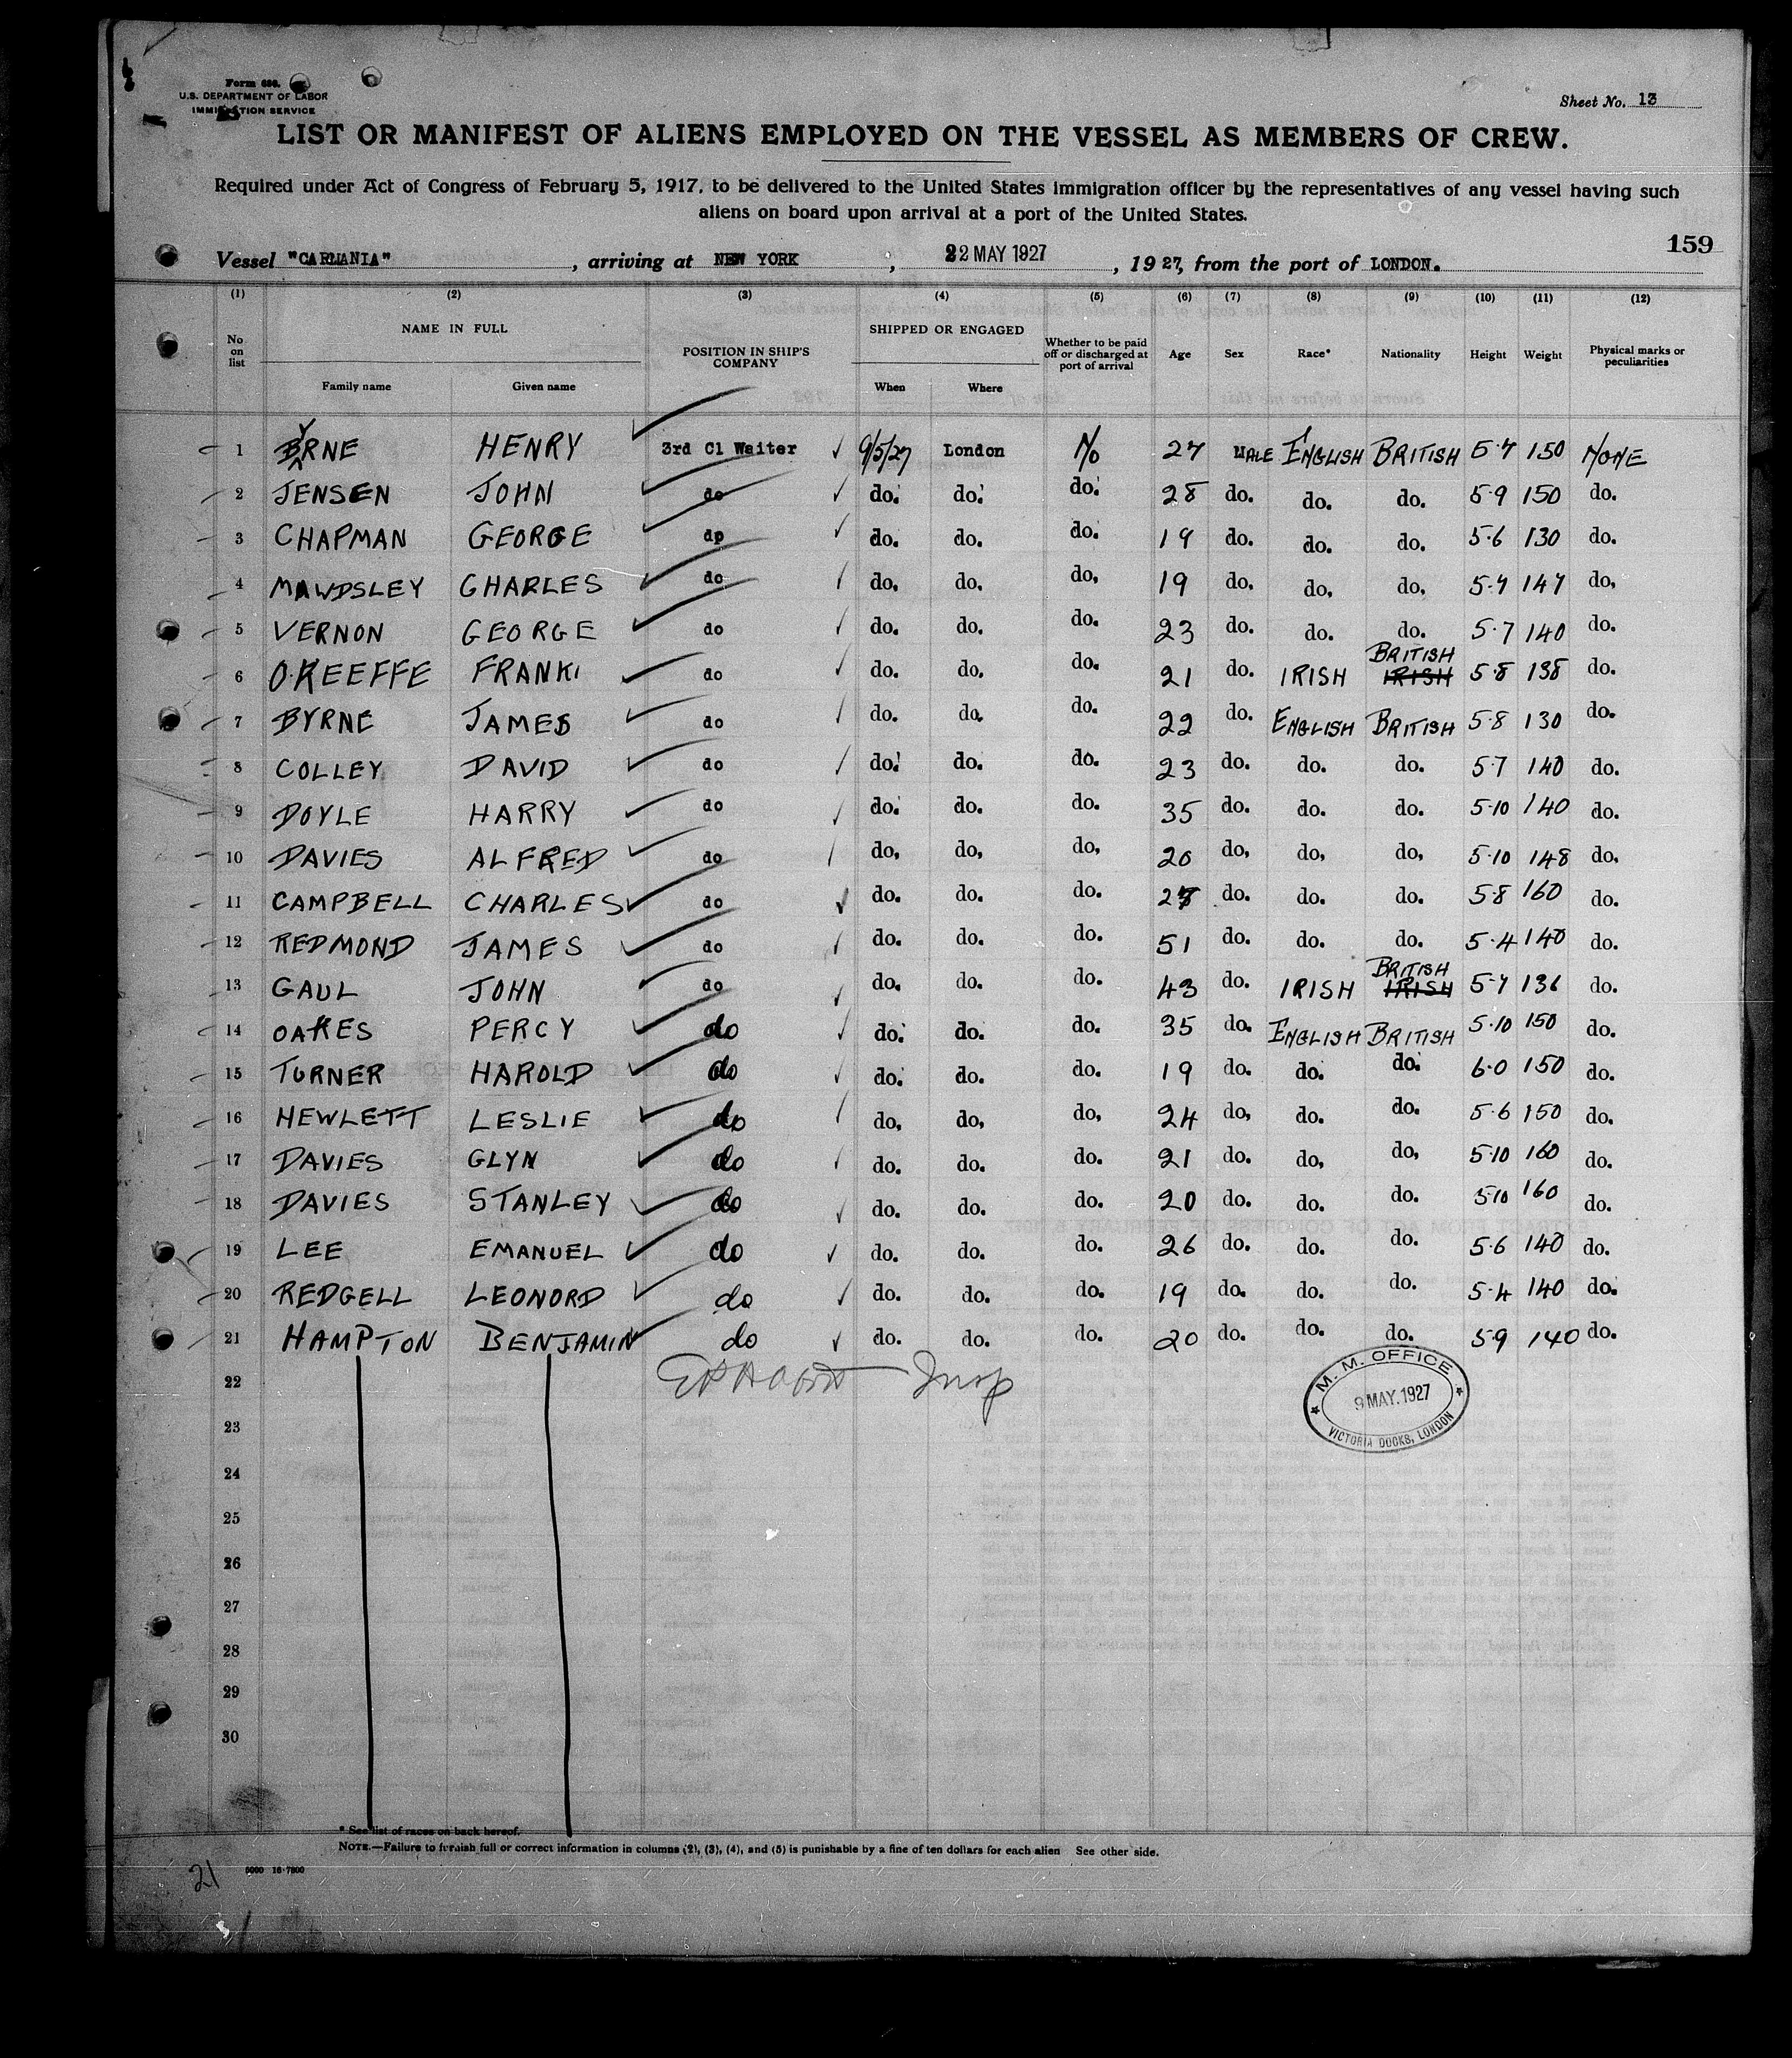 Form 680.
U.S. DEPARTMENT OF LABOR
IMMIGRATION SERVICE
Sheet No. 13
LIST OR MANIFEST OF ALIENS EMPLOYED ON THE VESSEL AS MEMBERS OF CREW.
Required under Act of Congress of February 5, 1917, to be delivered to the United States immigration officer by the representatives of any vessel having such
aliens on board upon arrival at a port of the United States.
159
Vessel "CARMANIA", arriving at NEW YORK, 22 MAY 1927, 1927, from the port of LONDON.
(1) (2) (3) (4) (5) (6) (7) (8) (9) (10) (11) (12)
No on list NAME IN FULL Family name Given name POSITION IN SHIP'S COMPANY SHIPPED OR ENGAGED When Where Whether to be paid off or discharged at port of arrival Age Sex Race* Nationality Height Weight Physical marks or peculiarities
1 BYRNE HENRY 3rd Cl Waiter 9/5/27 London N/o 27 MALE ENGLISH BRITISH 5·7 150 NONE
2 JENSEN JOHN do do. do. do. 28 do. do. do. 5·9 150 do.
3 CHAPMAN GEORGE do do. do. do. 19 do. do. do. 5·6 130 do.
4 MAWDSLEY CHARLES do do. do. do. 19 do. do. do. 5·7 147 do.
5 VERNON GEORGE do do. do. do. 23 do. do. do. 5·7 140 do.
6 O.KEEFFE FRANK do do. do. do. 21 do. IRISH BRITISH IRISH 5·8 138 do.
7 BYRNE JAMES do do. do. do. 22 do. ENGLISH BRITISH 5·8 130 do.
8 COLLEY DAVID do do. do. do. 23 do. do. do. 5·7 140 do.
9 DOYLE HARRY do do. do. do. 35 do. do. do. 5·10 140 do.
10 DAVIES ALFRED do do. do. do. 20 do. do. do. 5·10 148 do.
11 CAMPBELL CHARLES do do. do. do. do. do. do. 5·8 160 do.
12 REDMOND JAMES do do. do. do. 51 do. do. do. 5·4 140 do.
13 GAUL JOHN do do. do. do. 43 do. IRISH BRITISH IRISH 5·7 136 do.
14 OAKES PERCY do do. do. do. 35 do. ENGLISH BRITISH 5·10 150 do.
15 TURNER HAROLD do do. do. do. 19 do. do. do. 6·0 150 do.
16 HEWLETT LESLIE do do. do. do. 24 do. do. do. 5·6 150 do.
17 DAVIES GLYN do do. do. do. 21 do. do. do. 5·10 160 do.
18 DAVIES STANLEY do do. do. do. 20 do. do. do. 5·10 160 do.
19 LEE EMANUEL do do. do. do. 26 do. do. do. 5·6 140 do.
20 REDGELL LEONORD do do. do. do. 19 do. do. do. 5·4 140 do.
21 HAMPTON BENJAMIN do do. do. do. 20 do. do. do. 5·9 140 do.
22 Insp
M. M. OFFICE
9 MAY. 1927
VICTORIA DOCKS, LONDON
23
24
25
26
27
28
29
30
* See list of races on back hereof.
NOTE.—Failure to furnish full or correct information in columns (2), (3), (4), and (5) is punishable by a fine of ten dollars for each alien See other side.
21